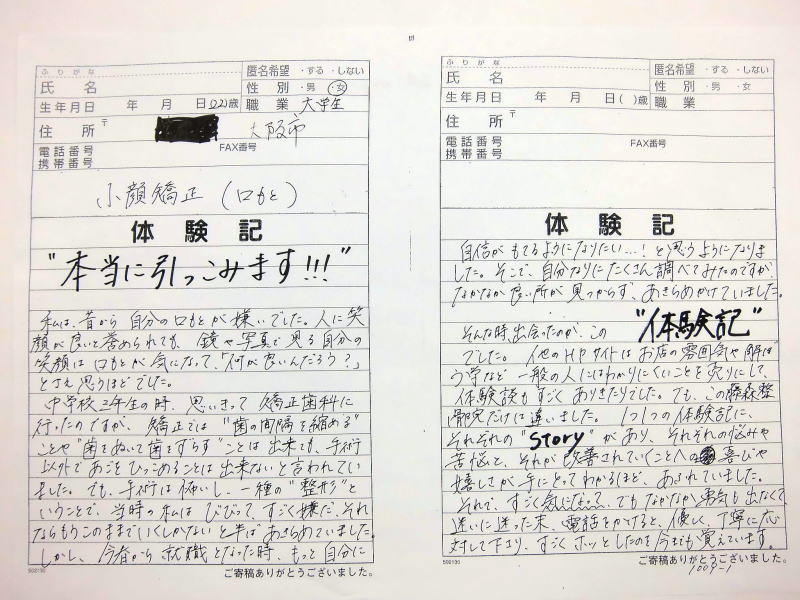 ふりがな
匿名希望 ・する ・しない
氏名
性別 ・男 ・女
生年月日 年 月 日(22)歳
職業 大学生
住所 〒
大阪市
電話番号
携帯番号
FAX番号
小顔矯正(口もと)
体験記
"本当に引っこみます!!!"
私は、昔から自分の口もとが嫌いでした。人に笑
顔が良いと誉められても、鏡や写真で見る自分の
笑顔は口もとが気になって、「何が良いんだろう?」
とさえ思うほどでした。
中学校2年生の時、思いきって矯正歯科に
行ったのですが、矯正では"歯の間隔を縮める"
ことや"歯をぬいて歯をずらす"ことは出来ても、手術
以外であごをひっこめることは出来ないと言われてい
ました。でも、手術は怖いし、一種の"整形"と
いうことで、当時の私はびびって、すごく嫌だ、それ
ならもうこのままでいくしかないと半ばあきらめていました。
しかし、今春から就職となった時、もっと自分に
502130
ご寄稿ありがとうございました。
ふりがな
匿名希望 ・する ・しない
氏名
性別 ・男 ・女
生年月日 年 月 日( )歳
職業
住所 〒
電話番号
携帯番号
FAX番号
体験記
自信がもてるようになりたい…!と思うようになりま
した。そこで、自分なりにたくさん調べてみたのですが、
なかなか良い所が見つからず、あきらめかけていました。
そんな時出会ったのが、この "体験記"
でした。他のHPサイトはお店の雰囲気や解ぼ
う学など一般の人にはわかりにくいことを売りにして、
体験談もすごくありきたりでした。でも、この藤森整
骨院だけは違いました。1つ1つの体験記に、
それぞれの"Story"があり、それぞれの悩みや
苦悩と、それが改善されていくことへの喜びや
嬉しさが手にとってわかるほど、あふれていました。
それで、すごく気になって、でもなかなか勇気も出なくて
迷いに迷った末、電話をかけると、優しく、丁寧に応
対して下さり、すごくホッとしたのを今でも覚えています。
502130
ご寄稿ありがとうございました。
1009-1